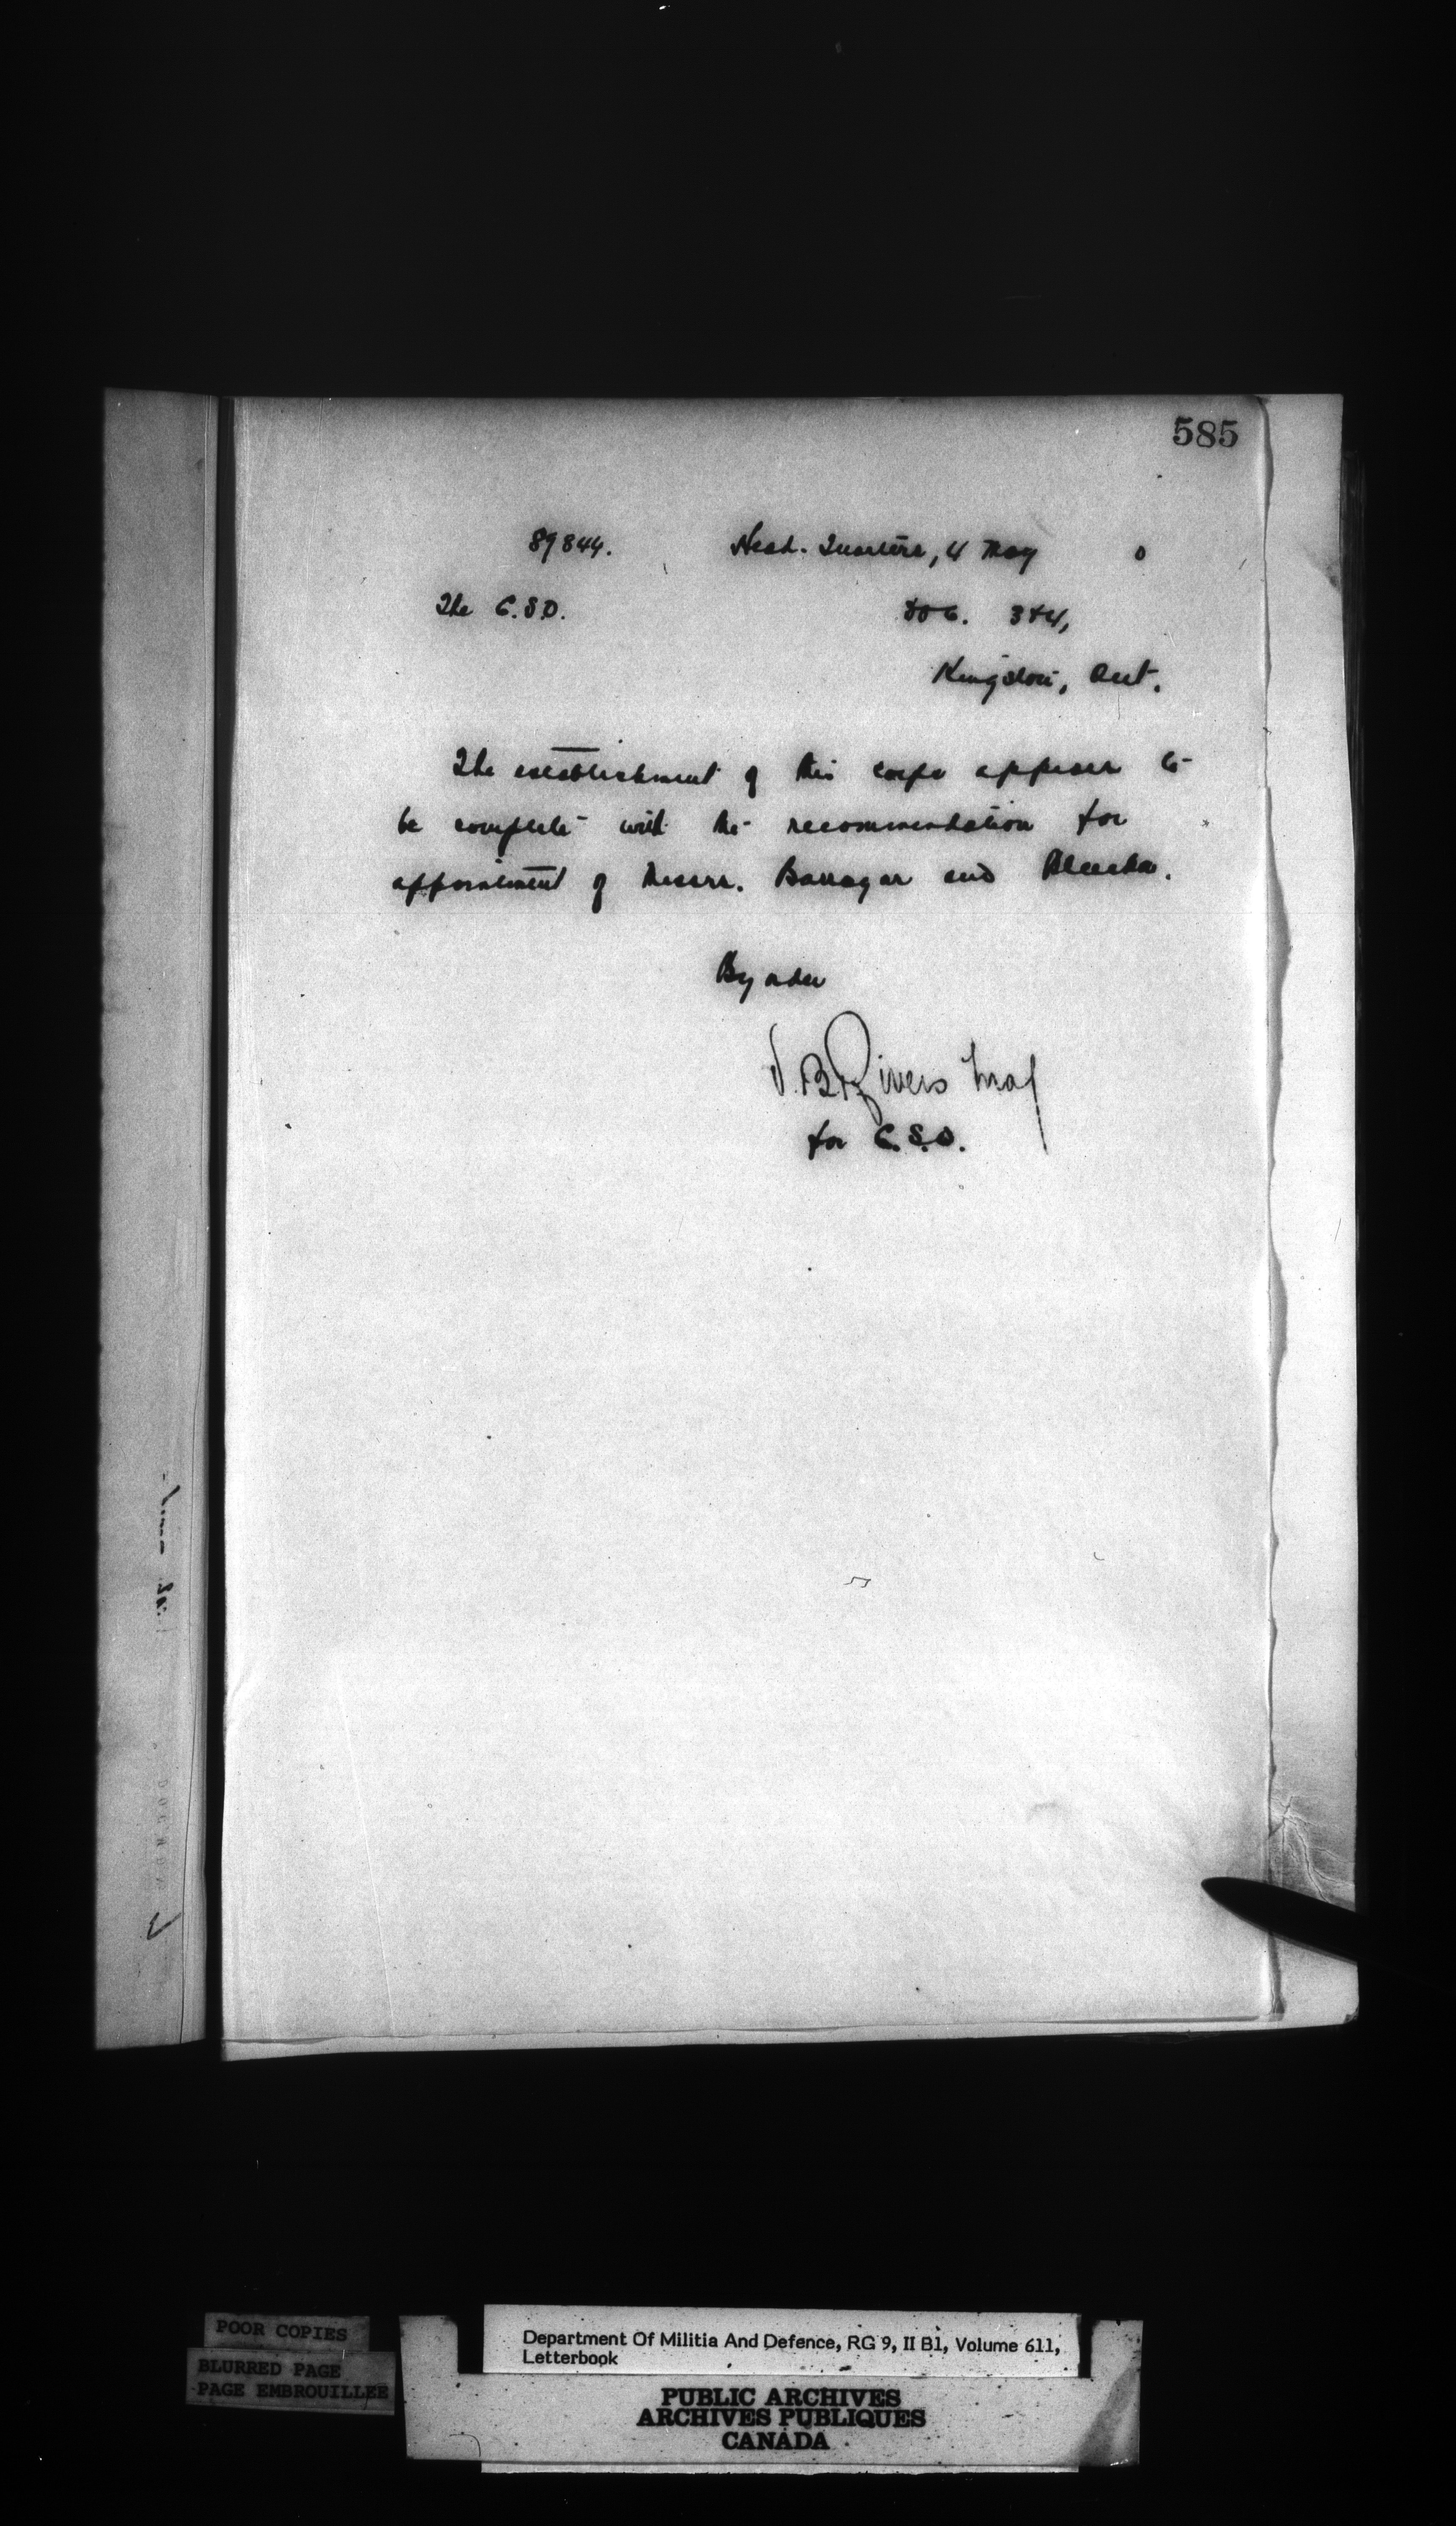 585
89844. Head. Quarters, 4 May 0
The C.S.O. DOC. 3&4,
Kingston, Ont.
The establishment of this corps appears to
be complete with the recommendation for
appointment of Messrs. and
By order
V.B. Rivers Maj
for C.S.O.
POOR COPIES
BLURRED PAGE
PAGE EMBROUILLEE
Department Of Militia And Defence, RG 9, II B1, Volume 611,
Letterbook
PUBLIC ARCHIVES
ARCHIVES PUBLIQUES
CANADA